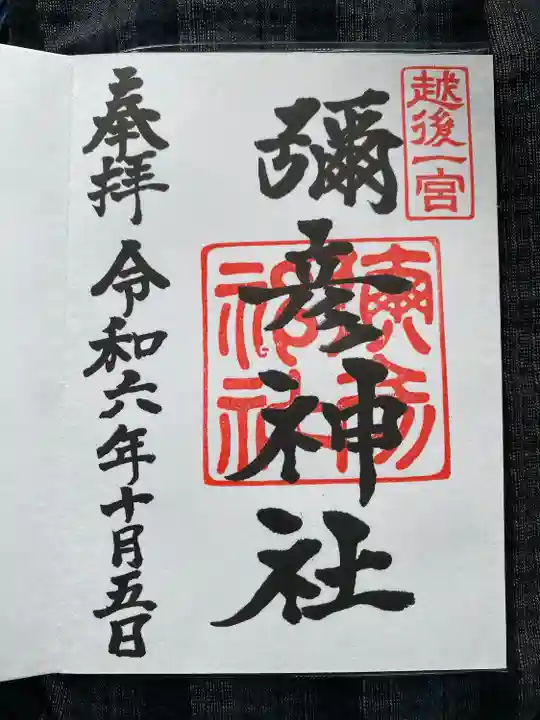 越後一宮
彌彦神社
奉拝 令和六年十月五日